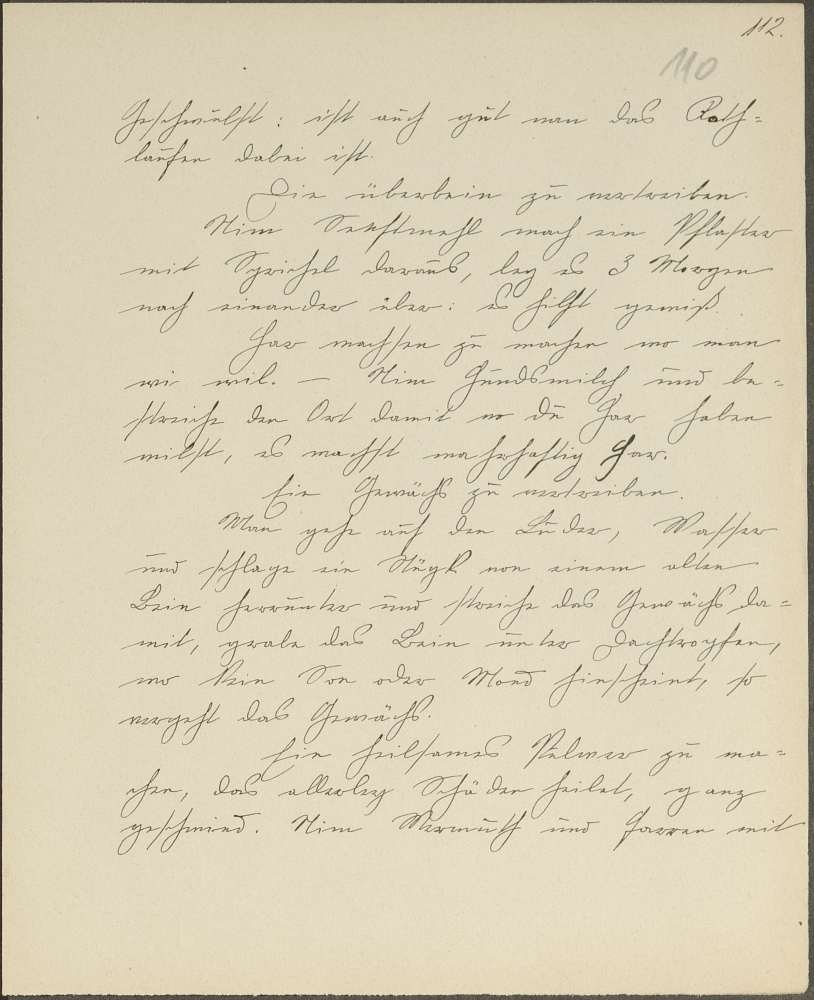 112.
110
Geschwulst: ist auch gut wan das Roth=
laufen dabei ist.
Die überbein zu vertreiben.
Nim Senftmehl mach ein Pflaster
mit Speichel daraus, leg es 3 Morgen
nach einander über: es hilft gewiß.
Har wachsen zu machen wo man
wi wil. — Nim Hundsmilch und be=
streiche den Ort damit wo du Har haben
wilst, es wachst wahrhaftig Har.
Ein Gewächs zu vertreiben.
Man gehe auf den Luder, Wasser
und schlage ein Stügk von einem alten
Bein herrunter und streiche das Gewächs da=
mit, grabe das Bein unter Dachtropfen,
wo kein Son oder Mond hinscheint, so
vergeht das Gewächs.
Ein heilsames Pulwer zu ma=
chen, das allerley Schäden heilet, ganz
geschwind. Nim Wermuth und Farren mit